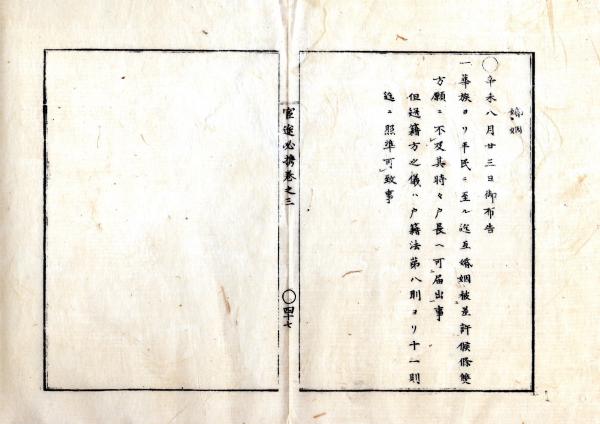 婚姻
◯辛未八月廿三日御布告
一華族ヨリ平民ニ至ル迄互婚姻被差許候條雙
方願ニ不及其時々戸長ヘ可届出事
但送籍方之儀ハ戸籍法第八則ヨリ十一則
迄ニ照準可致事
官途必携巻之三
◯四十七